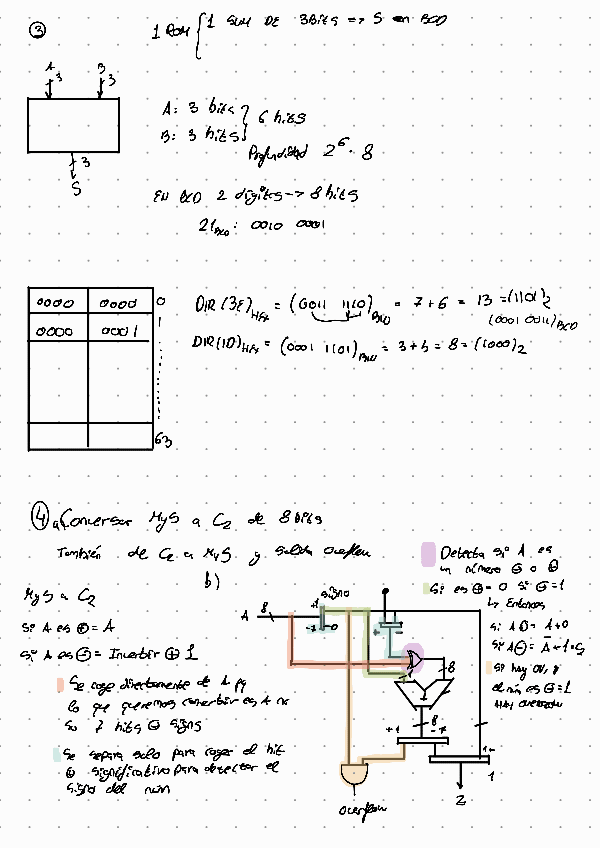 ③
1 ROM { 1 SUM DE 3Bits => S en BCD
A B
3 3
3
S
A: 3 bits } 6 bits
B: 3 bits
Profundidad 2⁶ · 8
EN BCD 2 digitos -> 8 bits
21BCD : 0010 0001
0000 0000 0
0000 0001 1
63
DIR (3E)HEX = (0011 1110) = 7+6 = 13 = (1101)2
(0001 0011)BCD
DIR (1D)HEX = (0001 1101) = 3+5 = 8 = (1000)2
④ a) Conversor MyS a C2 de 8 bits
También de C2 a MyS y salida overflow
b)
MyS a C2
Si A es ⊕ = A
Si A es ⊖ = Invertir ⊕ 1
Se coge directamente de A pq
lo que queremos convertir es A no
7 bits ⊖ signo
Se separa solo para coger el bit
⊕ significativo para detectar el
signo del num
Detecta si A es
un número ⊖ o ⊕
Si es ⊕ = 0 si ⊖ = 1
↳ Entonces
si A⊕ = A+0
Si A⊖ = A̅+1
Si hay OV, y
el nº es ⊖ = 1
Hay overflow
signo
A 8
+1
-7 0
8
+1 8 -7
1
overflow
Z